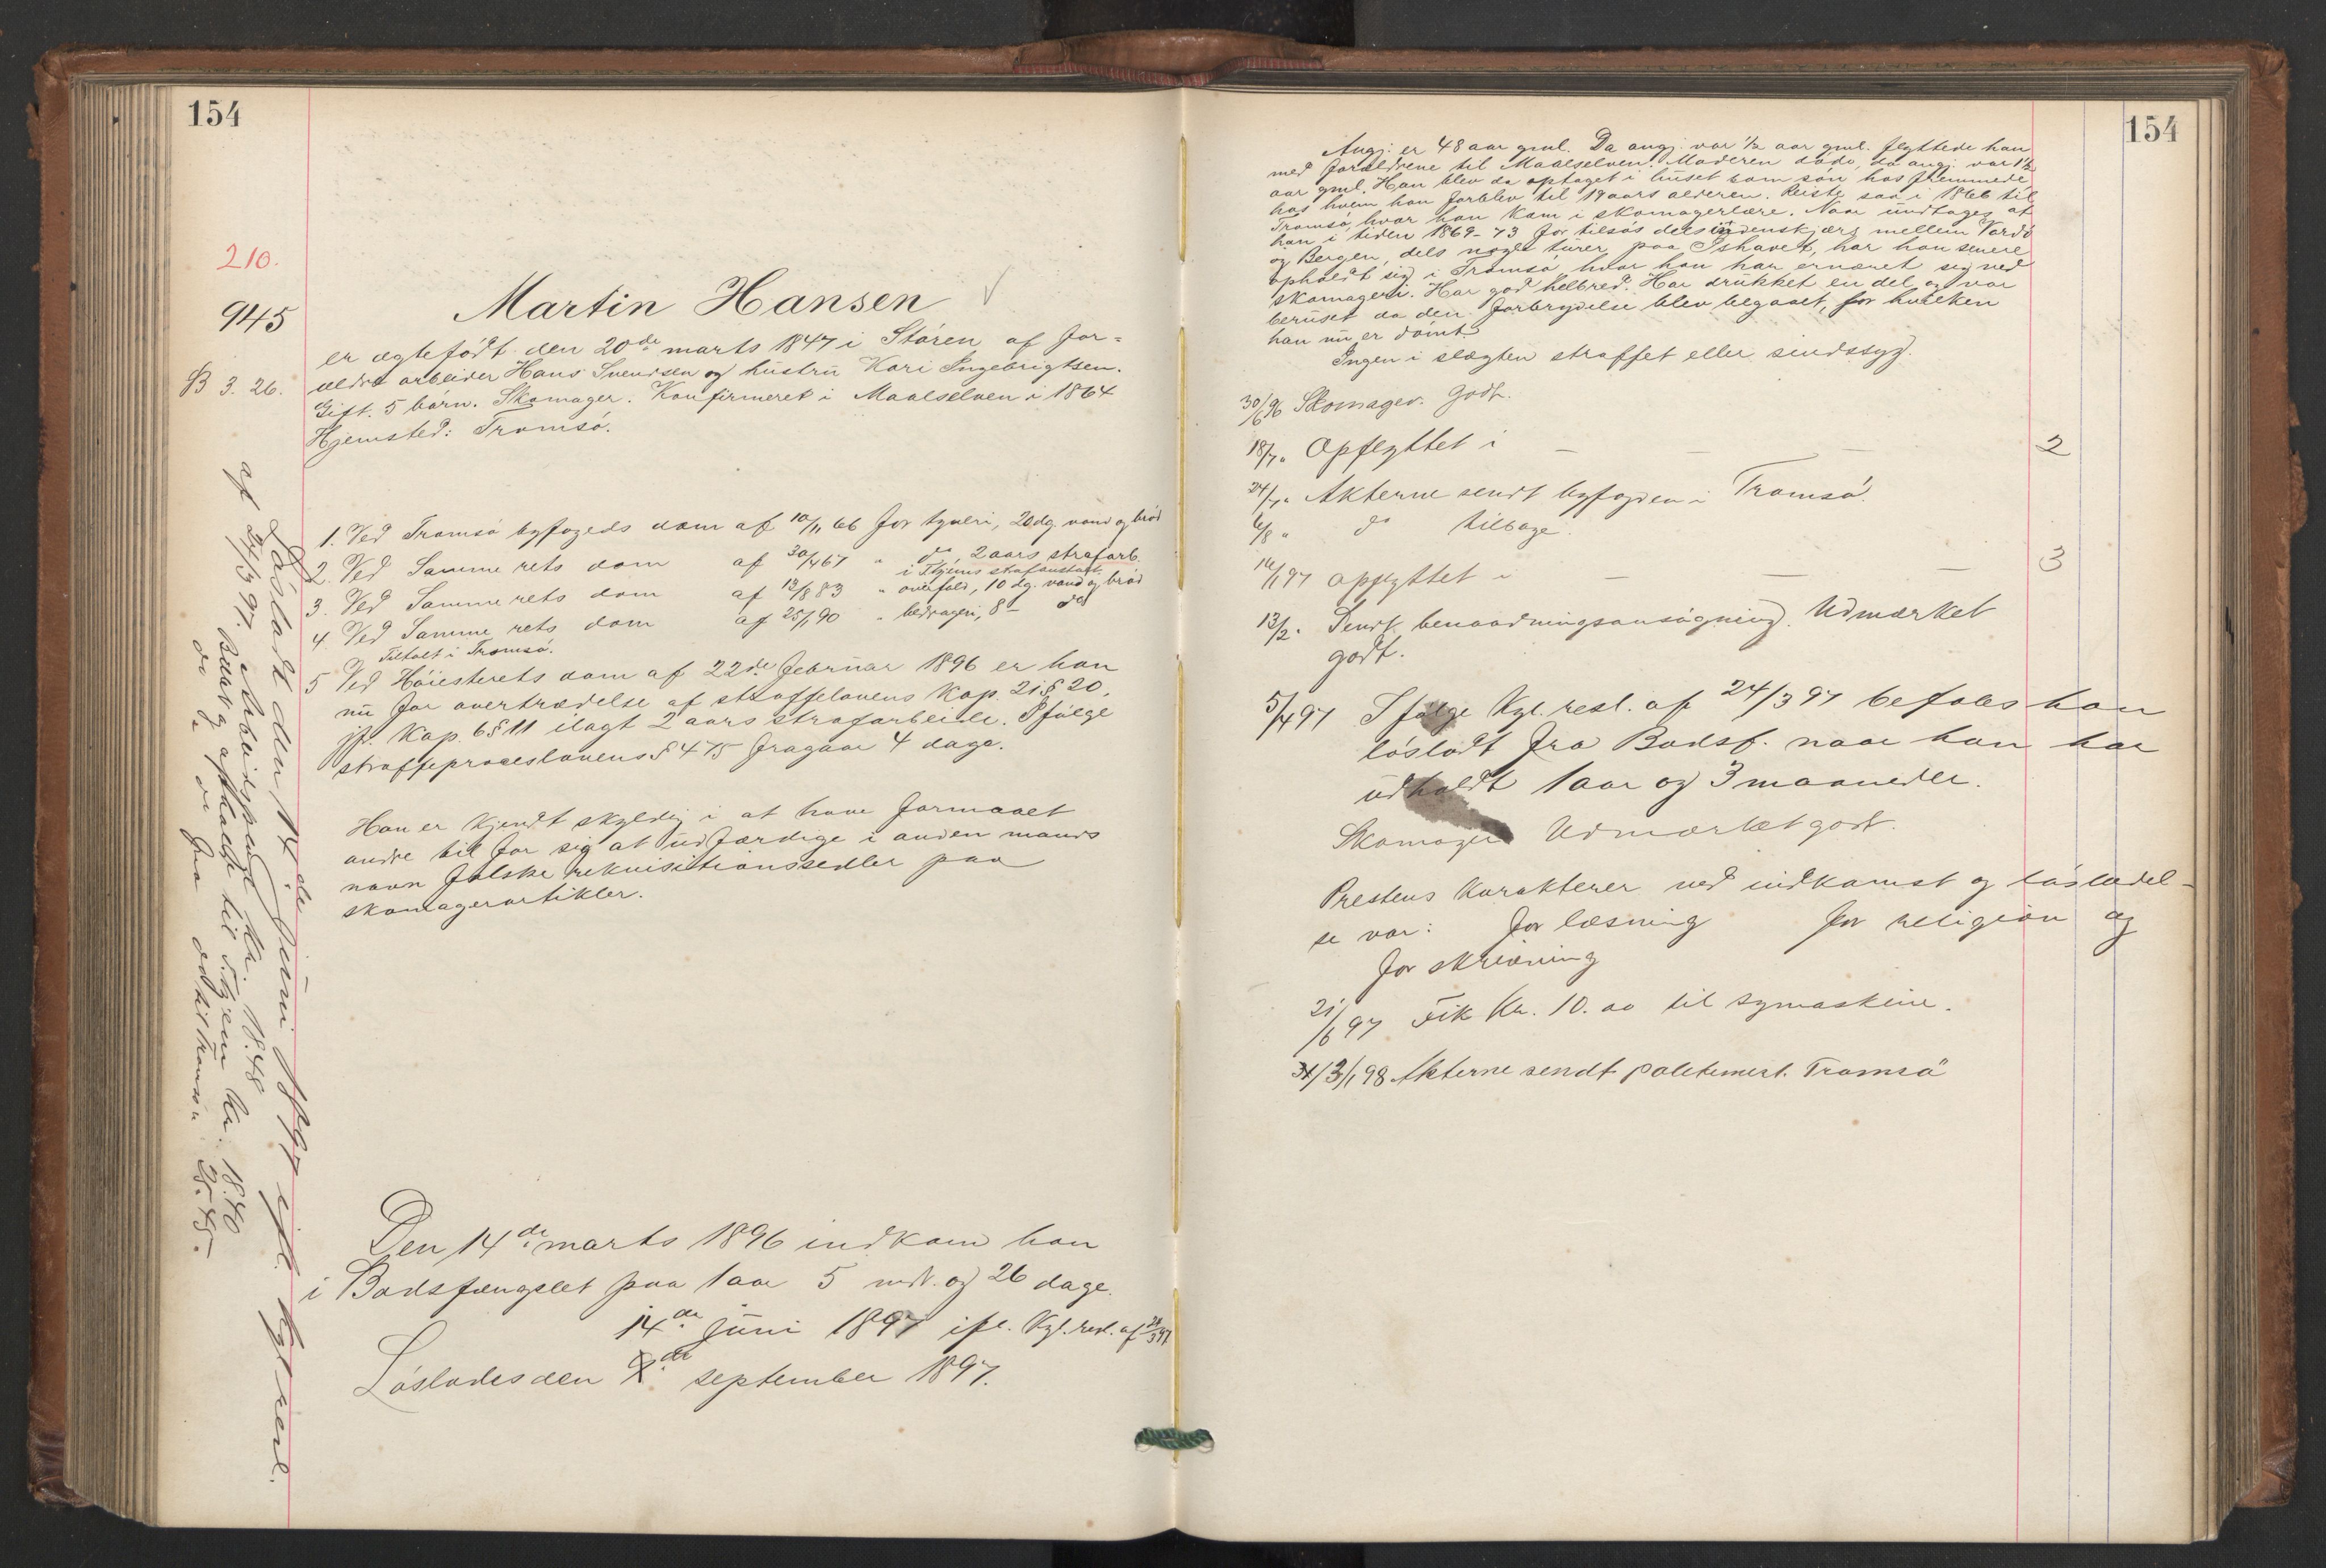 154
210.
945
B 3. 26.
Martin Hansen
er ægtefödt den 20de marts 1847 i Stören af for=
ældre arbeider Hans Svendsen og hustru Kari Ingebrigtsen.
Gift. 5 börn. Skomager. Konfirmeret i Maalselven i 1864
Hjemsted: Tromsö.
1. Ved Tromsö byfogeds dom af 10/11 66 for tyveri, 20 dg. vand og bröd
2. Ved Samme rets dom af 30/4 67 " do, 2 aars strafarb.
i Thjems strafanstalt.
3. Ved Samme rets dom af 13/8 83 " overfald, 10 dg. vand og bröd
4. Ved Samme rets dom af 25/1 90 " bedrageri, 8 — do
Tiltalt i Tromsö.
5 Ved Höiesterets dom af 22de februar 1896 er han
nu for overtrædelse af straffelovens Kap. 21 § 20,
jfr. Kap. 6 § 11 ilagt 2 aars strafarbeide. Ifölge
straffeproceslovens § 475 fragaar 4 dage.
Han er kjendt skyldig i at have formaaet
andre til for sig at udfærdige i anden mands
navn falske rekvisitionssedler paa
skomagerartikler.
Den 14de marts 1896 indkom han
i Bodsfængslet paa 1 aar 5 mdr. og 26 dage.
14de juni 1897 ifl. Kgl. resl. af 24/3 97
Löslades den 9de september 1897.
Lösladt den 14de juni 1897 ifl. Kgl. resl.
af 24/3 97. Arbeidspenge kr. 18.48
Billet og ophold til Thjem kr. 18.40
do " do fra do til Tromsö " 25.45.
154
Angj. er 48 aar gml. Da angj. var ½ aar gml. flyttede han
med forældrene til Maalselven. Moderen döde, da angj. var 1½
aar gml. Han blev da optaget i huset som sön hos fremmede
hos hvem han forblev til 19 aars alderen. Reiste saa i 1866 til
Tromsö, hvor han kom i skomagerlære. Naar undtages at
han i tiden 1869-73 for tilsös dels indenskjærs mellem Vardö
og Bergen, dels nogle turer paa Ishavet, har han senere
opholdt sig i Tromsö hvor han har ernæret sig ved
skomageri. Har god helbred. Har drukket en del og var
beruset da den forbrydelse blev begaaet, for hvilken
han nu er dömt.
Ingen i slægten straffet eller sindssyg.
30/6 96 Skomager. Godt.
18/7 " Opflyttet i — — — 2
24/7 " Akterne sendt byfogden i Tromsö.
6/8 " do tilbage.
16/1 97 opflyttet i — — — 3
13/2 " Sendt benaadningsansögning. Udmærket
godt.
5/4 97 Ifölge Kgl. resl. af 24/3 97 befales han
lösladt fra Bodsf. naar han har
udholdt 1 aar og 3 maaneder.
Skomager Udmærket godt.
Prestens karakterer ved indkomst og lösladel-
se var: for læsning for religion og
for skrivning
21/6 97 Fik Kr. 10.00 til symaskine.
31/3/1 98 Akterne sendt politimest. Tromsö